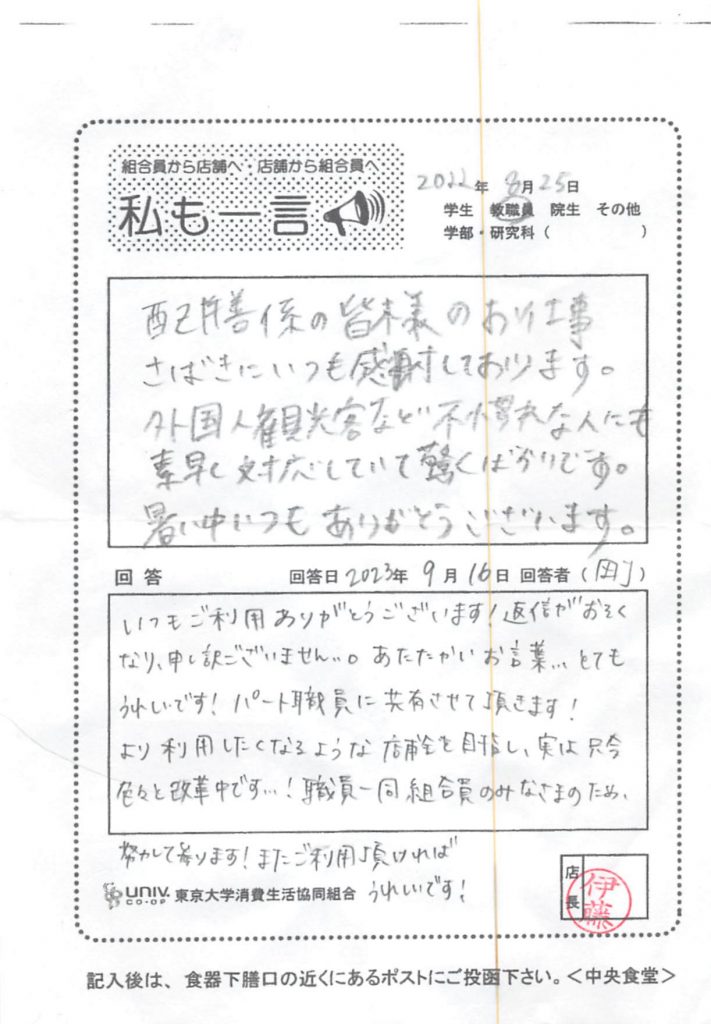 組合員から店舗へ・店舗から組合員へ
私も一言
2022年 8月25日
学生 教職員 院生 その他
学部・研究科( )
配膳係の皆様のお仕事
さばきにいつも感謝しております。
外国人観光客など不慣れな人にも
素早く対応していて驚くばかりです。
暑い中いつもありがとうございます。
回答 回答日 2023年 9月 16日 回答者( )
いつもご利用ありがとうございます!返信がおそく
なり、申し訳ございません…。あたたかいお言葉… とても
うれしいです! パート職員に共有させて頂きます!
より利用したくなるような店舗を目指し、実は只今
色々と改革中です…! 職員一同組合員のみなさまのため、
努力して参ります! またご利用頂ければ
うれしいです!
UNIV.
CO-OP
東京大学消費生活協同組合
店長
伊藤
記入後は、食器下膳口の近くにあるポストにご投函下さい。<中央食堂>